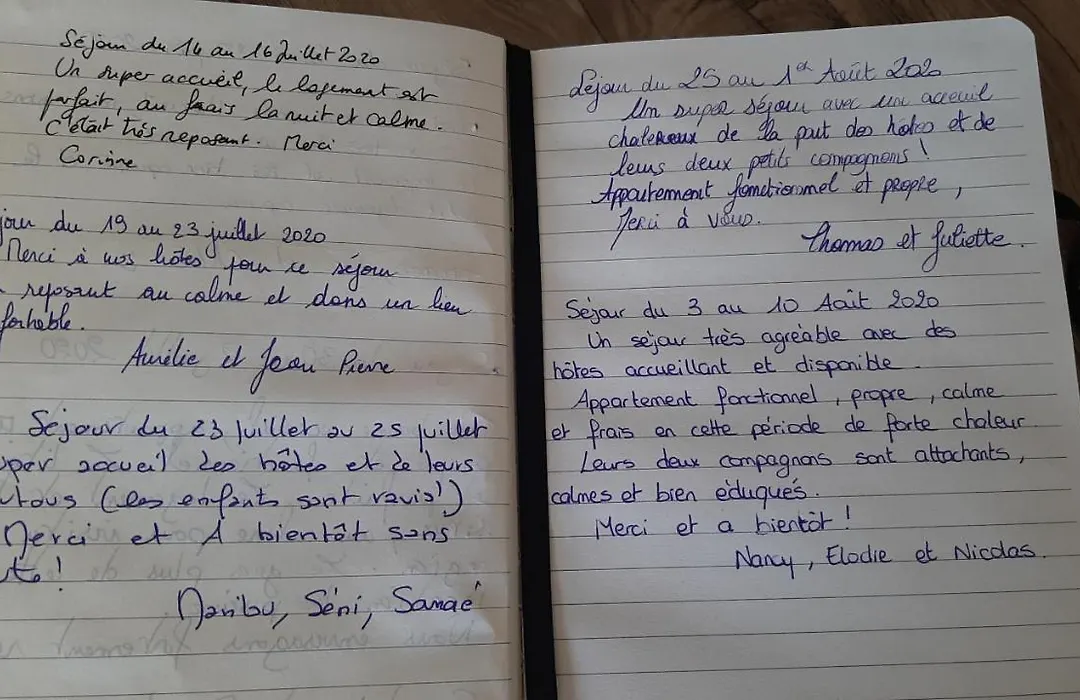 Séjour du 14 au 16 Juillet 2020
Un super accueil, le logement est
parfait, au frais la nuit et calme.
C'était très reposant. Merci
Corinne
jour du 19 au 23 juillet 2020
Merci à nos hôtes pour ce séjour
reposant au calme et dans un lieu
fortable.
Aurélie et Jean Pierre
Séjour du 23 juillet au 25 juillet
uper accueil des hôtes et de leurs
utous (les enfants sont ravis!)
Merci et A bientôt sans
ute!
Maribu, Séni, Sanaé
Séjour du 25 au 1er Août 2020
Un super séjour avec un acceuil
chalereux de la part des hôtes et de
leurs deux petits compagnons!
Appartement fonctionnel et propre,
Merci à vous.
Thomas et Juliette.
Séjour du 3 au 10 Août 2020
Un séjour très agréable avec des
hôtes accueillant et disponible.
Appartement fonctionnel, propre, calme
et frais en cette période de forte chaleur.
Leurs deux compagnons sont attachants,
calmes et bien éduqués.
Merci et a bientôt!
Nancy, Elodie et Nicolas.